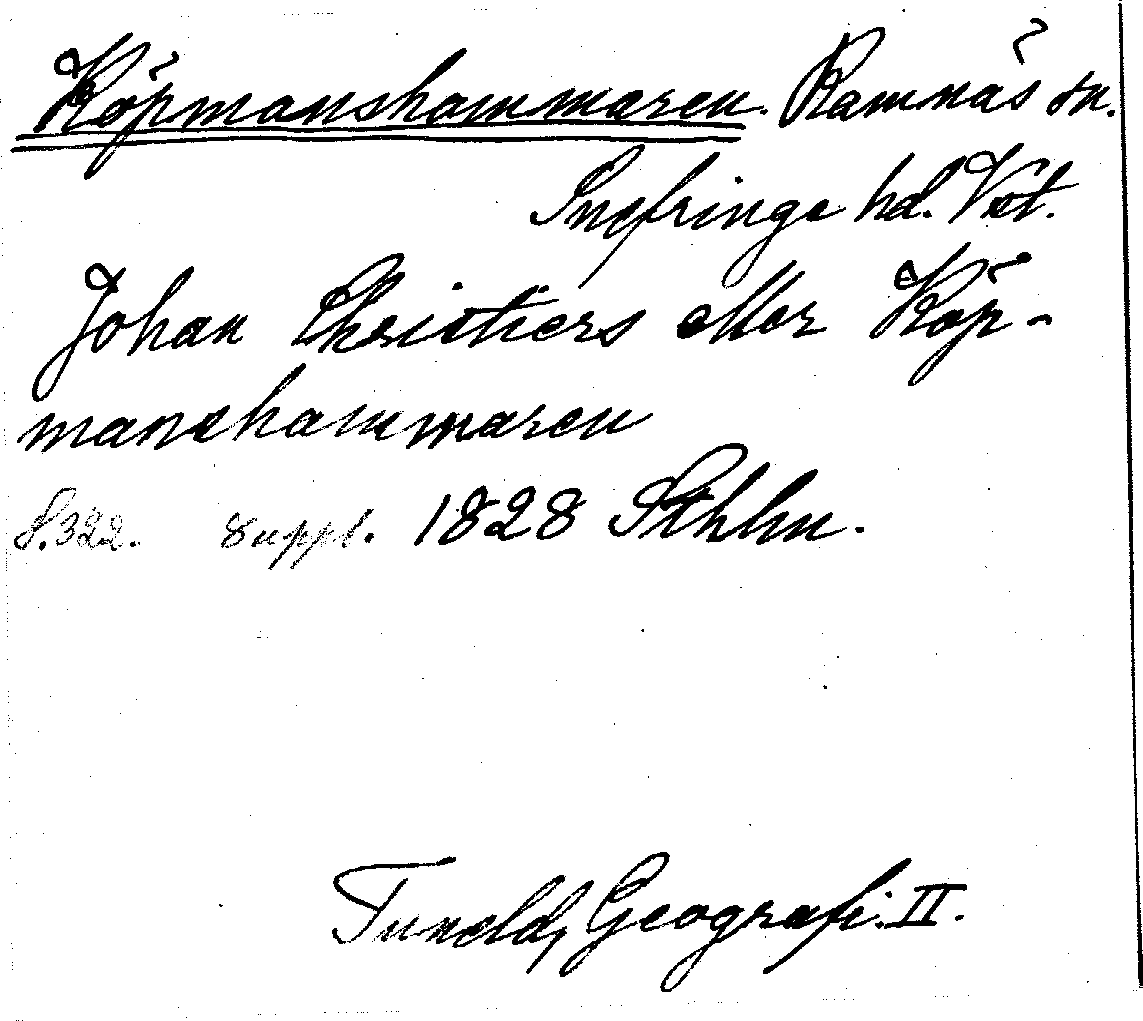 Köpmanshammaren. Ramnäs sn.
Snefringe hd. Vstl.
Johan Christiers eller Köp-
manshammaren
S. 322. suppl. 1828 Sthlm.
Tuneld, Geografi. II.